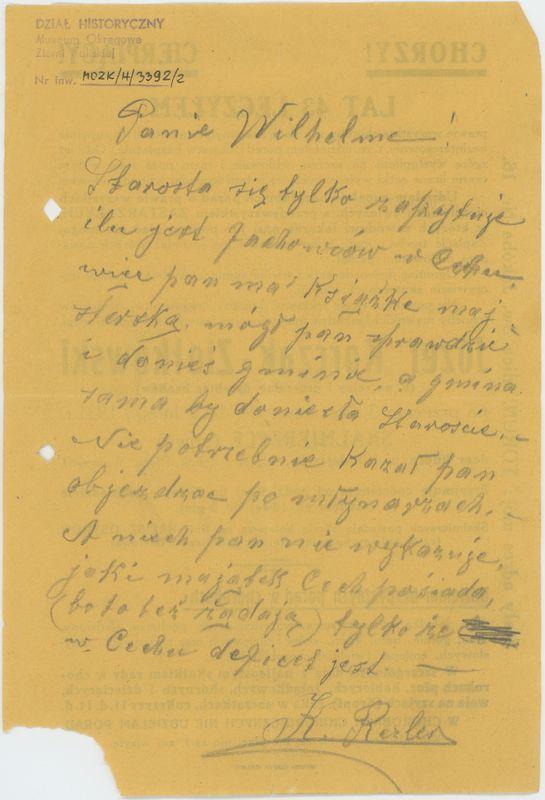 DZIAŁ HISTORYCZNY
Muzeum Okręgowe
Ziemi Kaliskiej
Nr inw. MOZK/H/3392/2
CHORZY!
CIERPIĄCY!
LAT 43 LECZYŁEM
Panie Wilhelme!
Starosta się tylko zapytuje
ilu jest fachowców w Cechu
wiec pan ma książkę maj-
sterską, mógł pan sprawdzić
i donieś gminie, a gmina
sama by doniesła Staroście. –
Nie potrzebnie kazał pan
objezdzac po młynarzach. –
A niech pan nie wykazuje,
jaki majątek Cech pośiada,
(bo to też rządają) tylko że
w Cechu deficet jest. —
K. Rezler